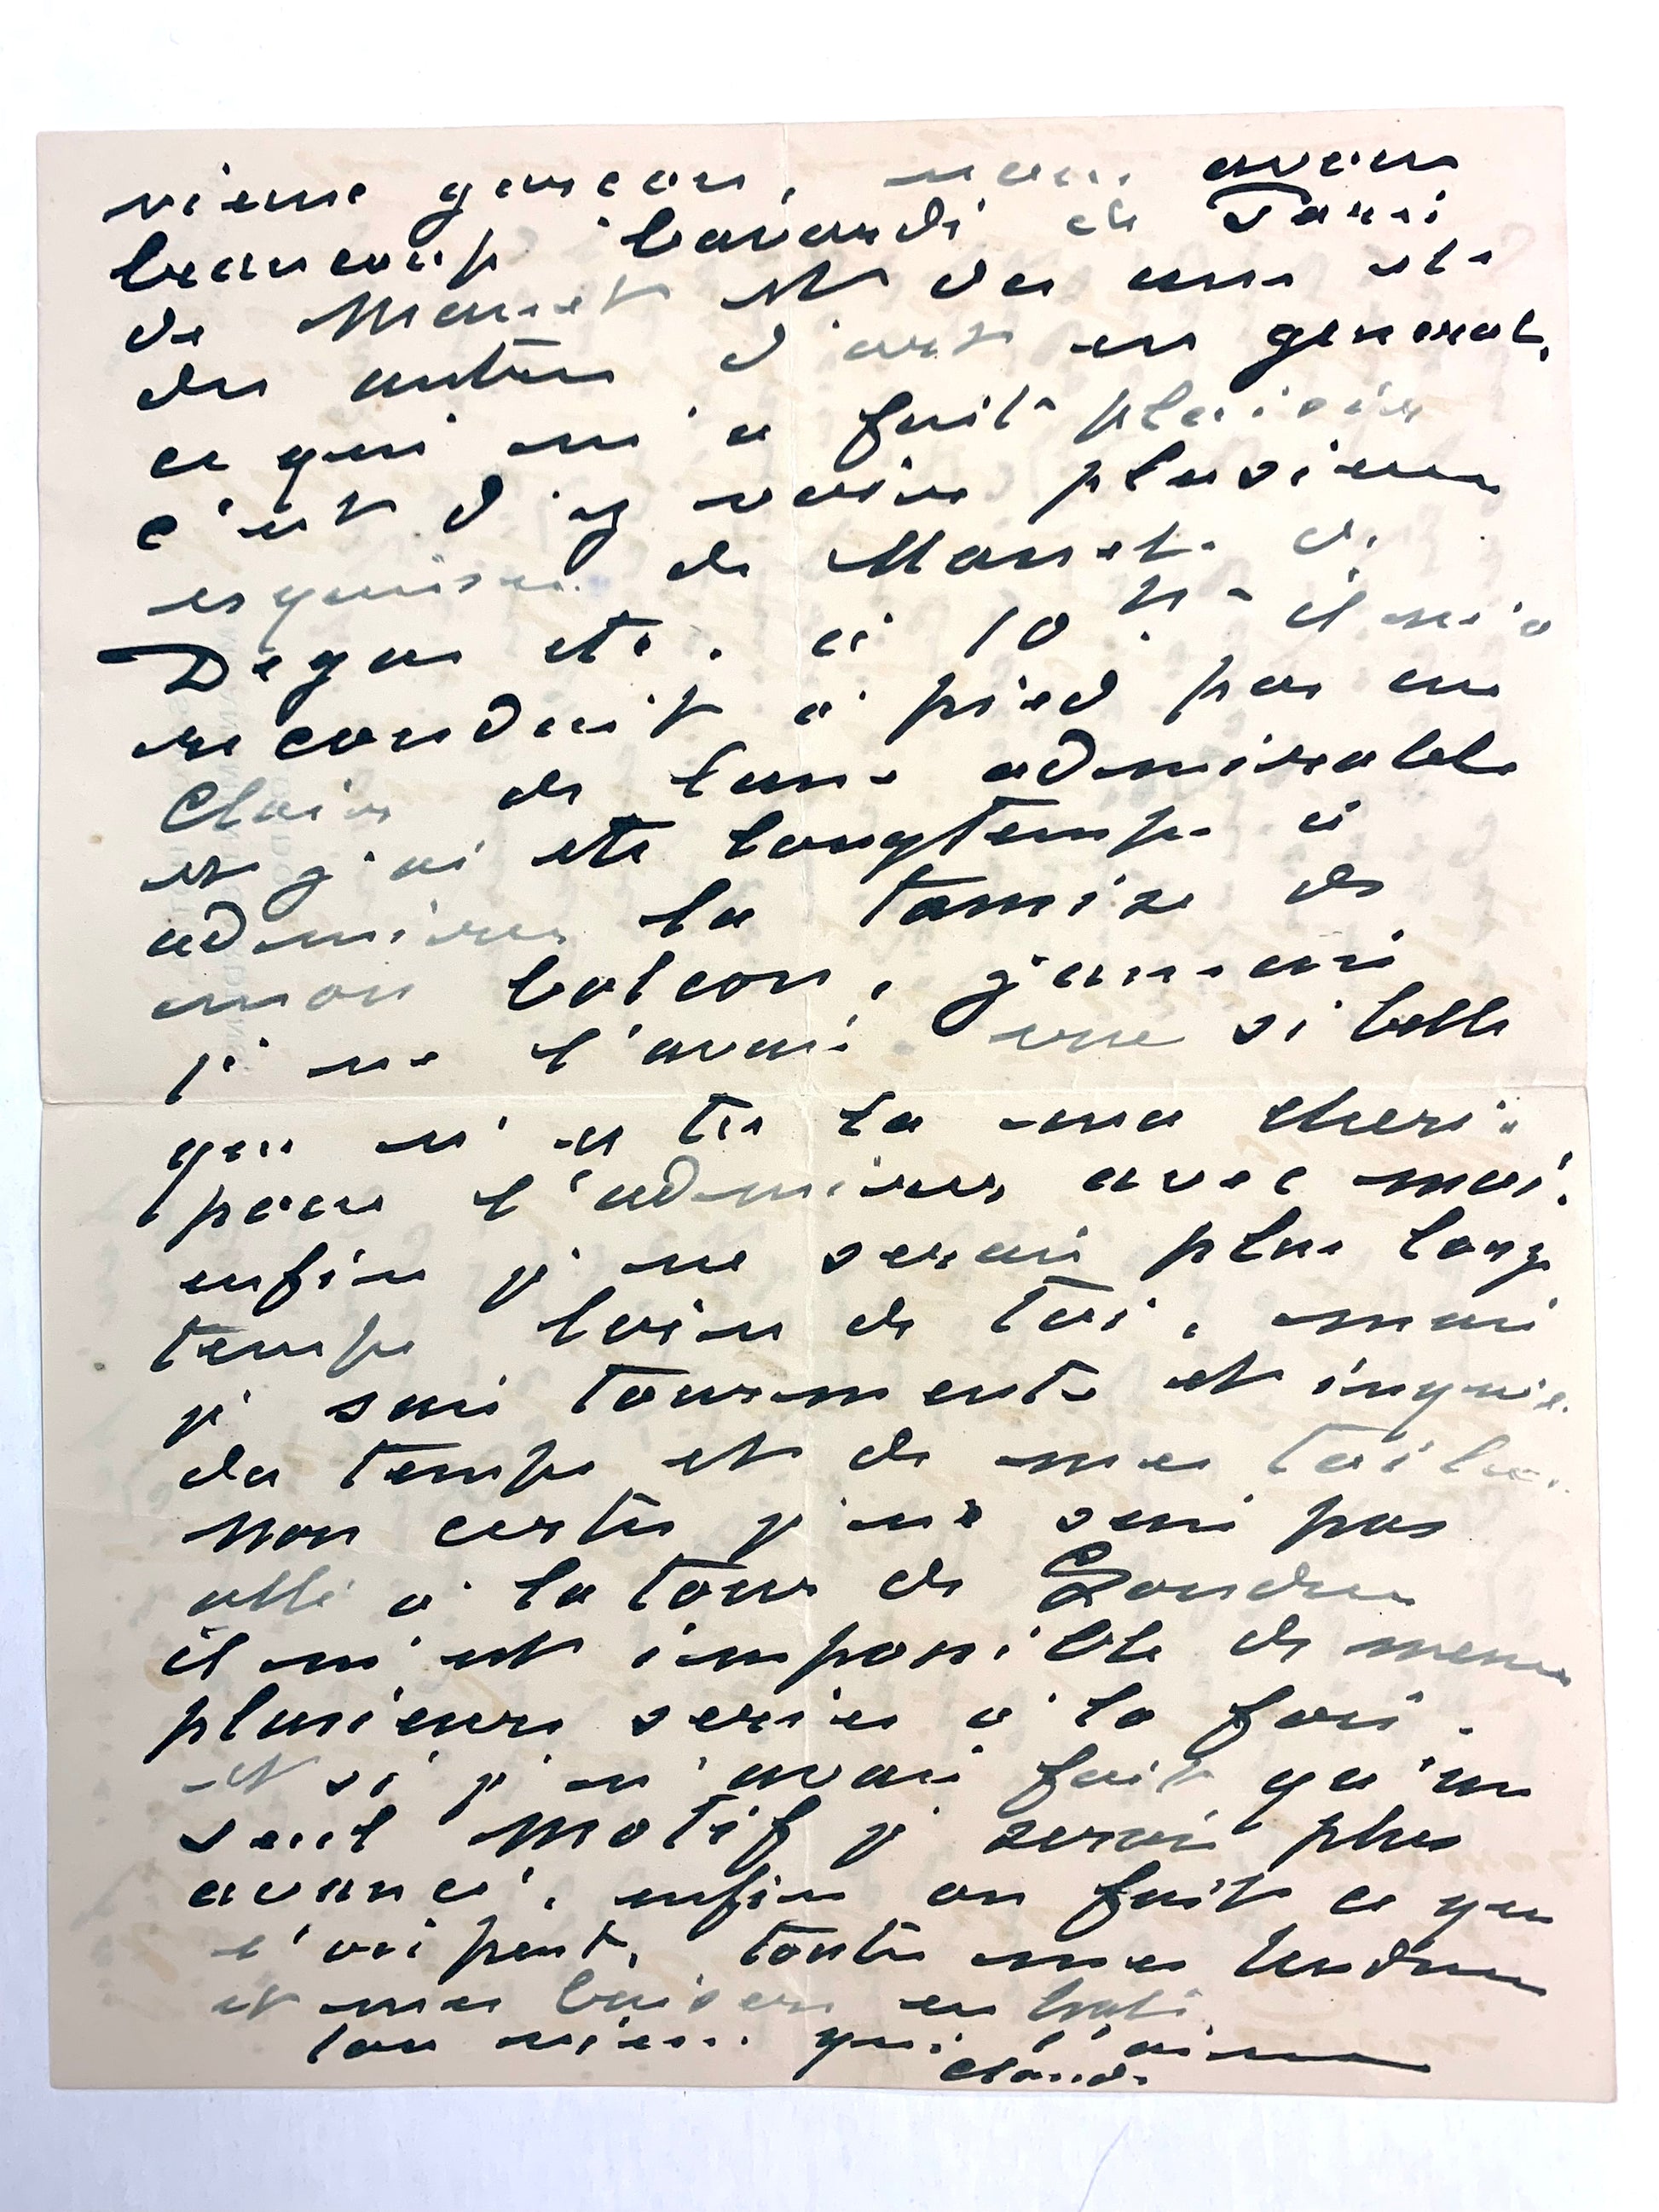 vieux garçon, nous avons
beaucoup bavardé de Paris
de Manet et de etc
des autres d'art en general,
ce qui m'a fait plaisir
c'est d'y voir plusieurs
esquisses de Manet de
Degas etc. à 10 h il m'a
reconduit à pied par un
clair de lune admirable
et j'ai été longtemps à
admirer la Tamise de
mon balcon, jamais
je ne l'avais vue si belle
que n'es tu la ma cherie
pour l'admirer avec moi.
enfin je ne serai plus long
temps loin de toi, mais
je suis tourmenté et inquiet
du temps et de mes toiles.
Non certes je ne suis pas
allé à la tour de Londres
il m'est impossible de mener
plusieurs series à la fois.
et si je n'avais fait qu'un
seul motif je serais plus
avancé, enfin on fait ce que
l'on peut. toutes mes tendresses
et mes baisers en hate.
ton vieux qui t'aime
Claude